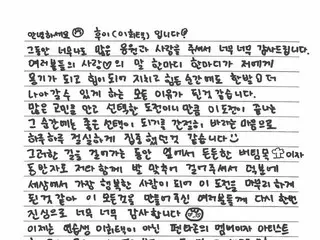 안녕하세요 후이(이회택) 입니다
그동안 너무나도 많은 응원과 사랑을 주셔서 너무 너무 감사드립니다.
여러분들의 사랑♡의 말 한마디 한마디가 저에게
용기가 되고 힘이되어 지치고 힘든 순간에도 한발 더
나아갈 수 있게 하는 모든 이유가 된것 같습니다.
많은 고민을 안고 선택한 도전이니 만큼 이 도전이 끝나는
그 순간에는 좋은 선택이 되기를 간절히 바라는 마음으로
하루하루 절실하게 집중했던것 같습니다
그러한 길을 걸어가는 동안 옆에서 든든한 버팀목 이자
동반자로 저와함께 발 맞추어 걸어주셔서 덕분에
세상에서 가장 행복한 사람이 되어 이 도전을 마무리 하게
된것 같아 이 모든것을 만들어주신 여러분들께 다시 한번
진심으로 너무 너무 감사합니다
이제는 연습생 이회택이 아닌 펜타곤의 멤버이자 아티스트